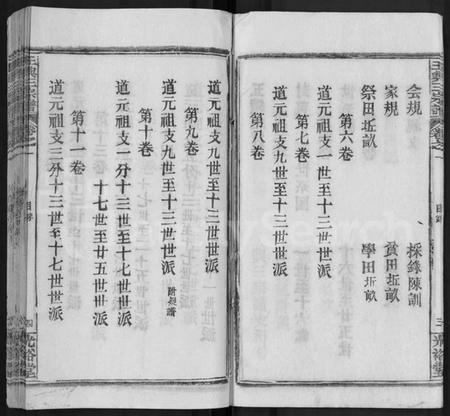 會規　採錄陳訓
家規　貧田坵畝
祭田坵畝　學田坵畝
第六卷
道元祖支一世至五世世派
第七卷
道元祖支五世至十三世世派
第八卷
目錄
三　光裕堂
道元祖支九世至十三世世派
第九卷
道元祖支九世至十三世世派
第十卷
道元祖支一分十三世至十七世世派
十七世至廿五世世派
第十一卷
道元祖支二分十三世至十七世世派
目錄
四　光裕堂